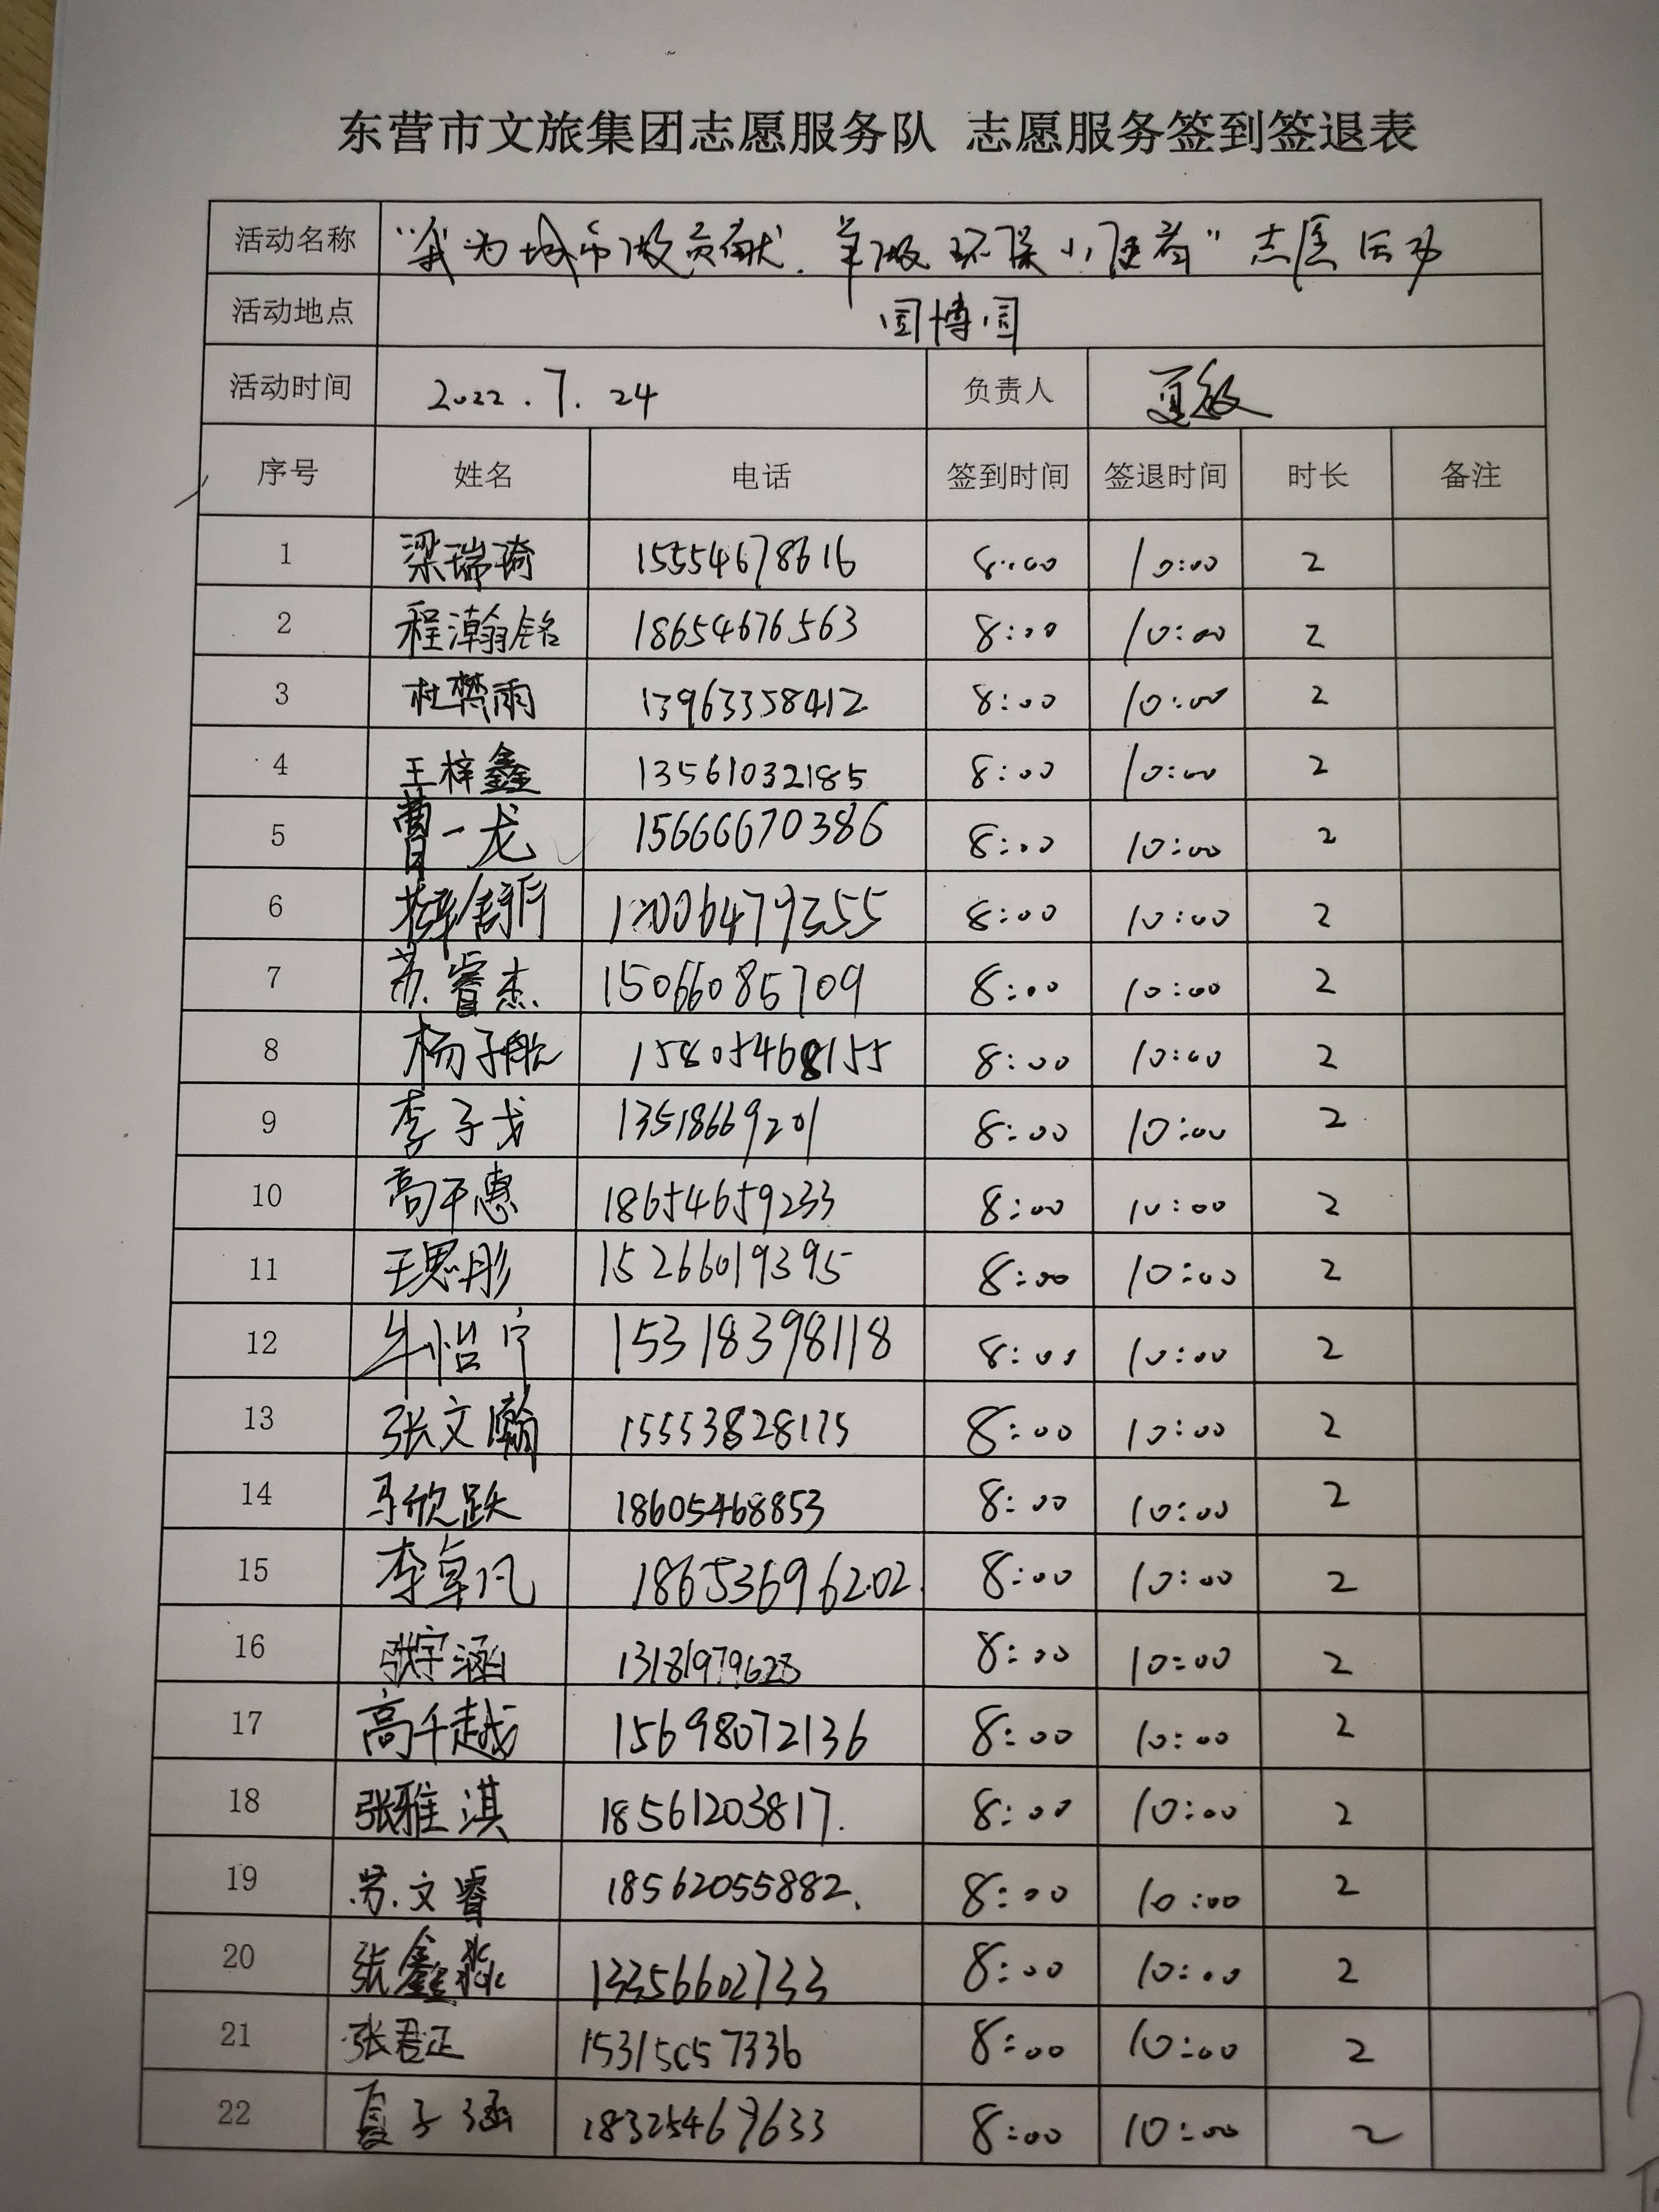 东营市文旅集团志愿服务队 志愿服务签到签退表
活动名称 “我为城市做贡献,争做环保小使者”志愿活动
活动地点 园博园
活动时间 2022.7.24 负责人 夏敏
序号 姓名 电话 签到时间 签退时间 时长 备注
1 梁瑞琦 15554678616 8:00 10:00 2
2 程瀚铭 18654676563 8:00 10:00 2
3 杜樊雨 13963358412 8:00 10:00 2
4 王梓鑫 13561032185 8:00 10:00 2
5 曹一龙 15666670386 8:00 10:00 2
6 8:00 10:00 2
7 苏睿杰 15066085709 8:00 10:00 2
8 杨子航 15805468155 8:00 10:00 2
9 李子戈 13518669201 8:00 10:00 2
10 高千惠 18654659233 8:00 10:00 2
11 王思彤 15266019395 8:00 10:00 2
12 牟怡宁 15318398118 8:00 10:00 2
13 张文瀚 15553828175 8:00 10:00 2
14 马欣跃 18605468853 8:00 10:00 2
15 李卓凡 18653696202 8:00 10:00 2
16 张宇涵 13181979628 8:00 10:00 2
17 高千越 15698072136 8:00 10:00 2
18 张雅淇 18561203817. 8:00 10:00 2
19 苏文睿 18562055882. 8:00 10:00 2
20 张鑫淼 13356602733 8:00 10:00 2
21 张君正 15315057336 8:00 10:00 2
22 夏子涵 18325469633 8:00 10:00 2